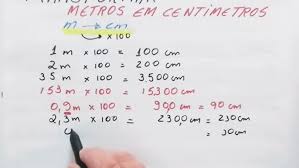 METROS EM CENTÍMETROS
m → cm
x100
1 m x 100 = 100 cm
2 m x 100 = 200 cm
35 m x 100 = 3.500 cm
153 m x 100 = 15.300 cm
0,9 m x 100 = 90,0 cm = 90 cm
2,3 m x 100 = 230,0 cm = 230 cm
= 30 cm